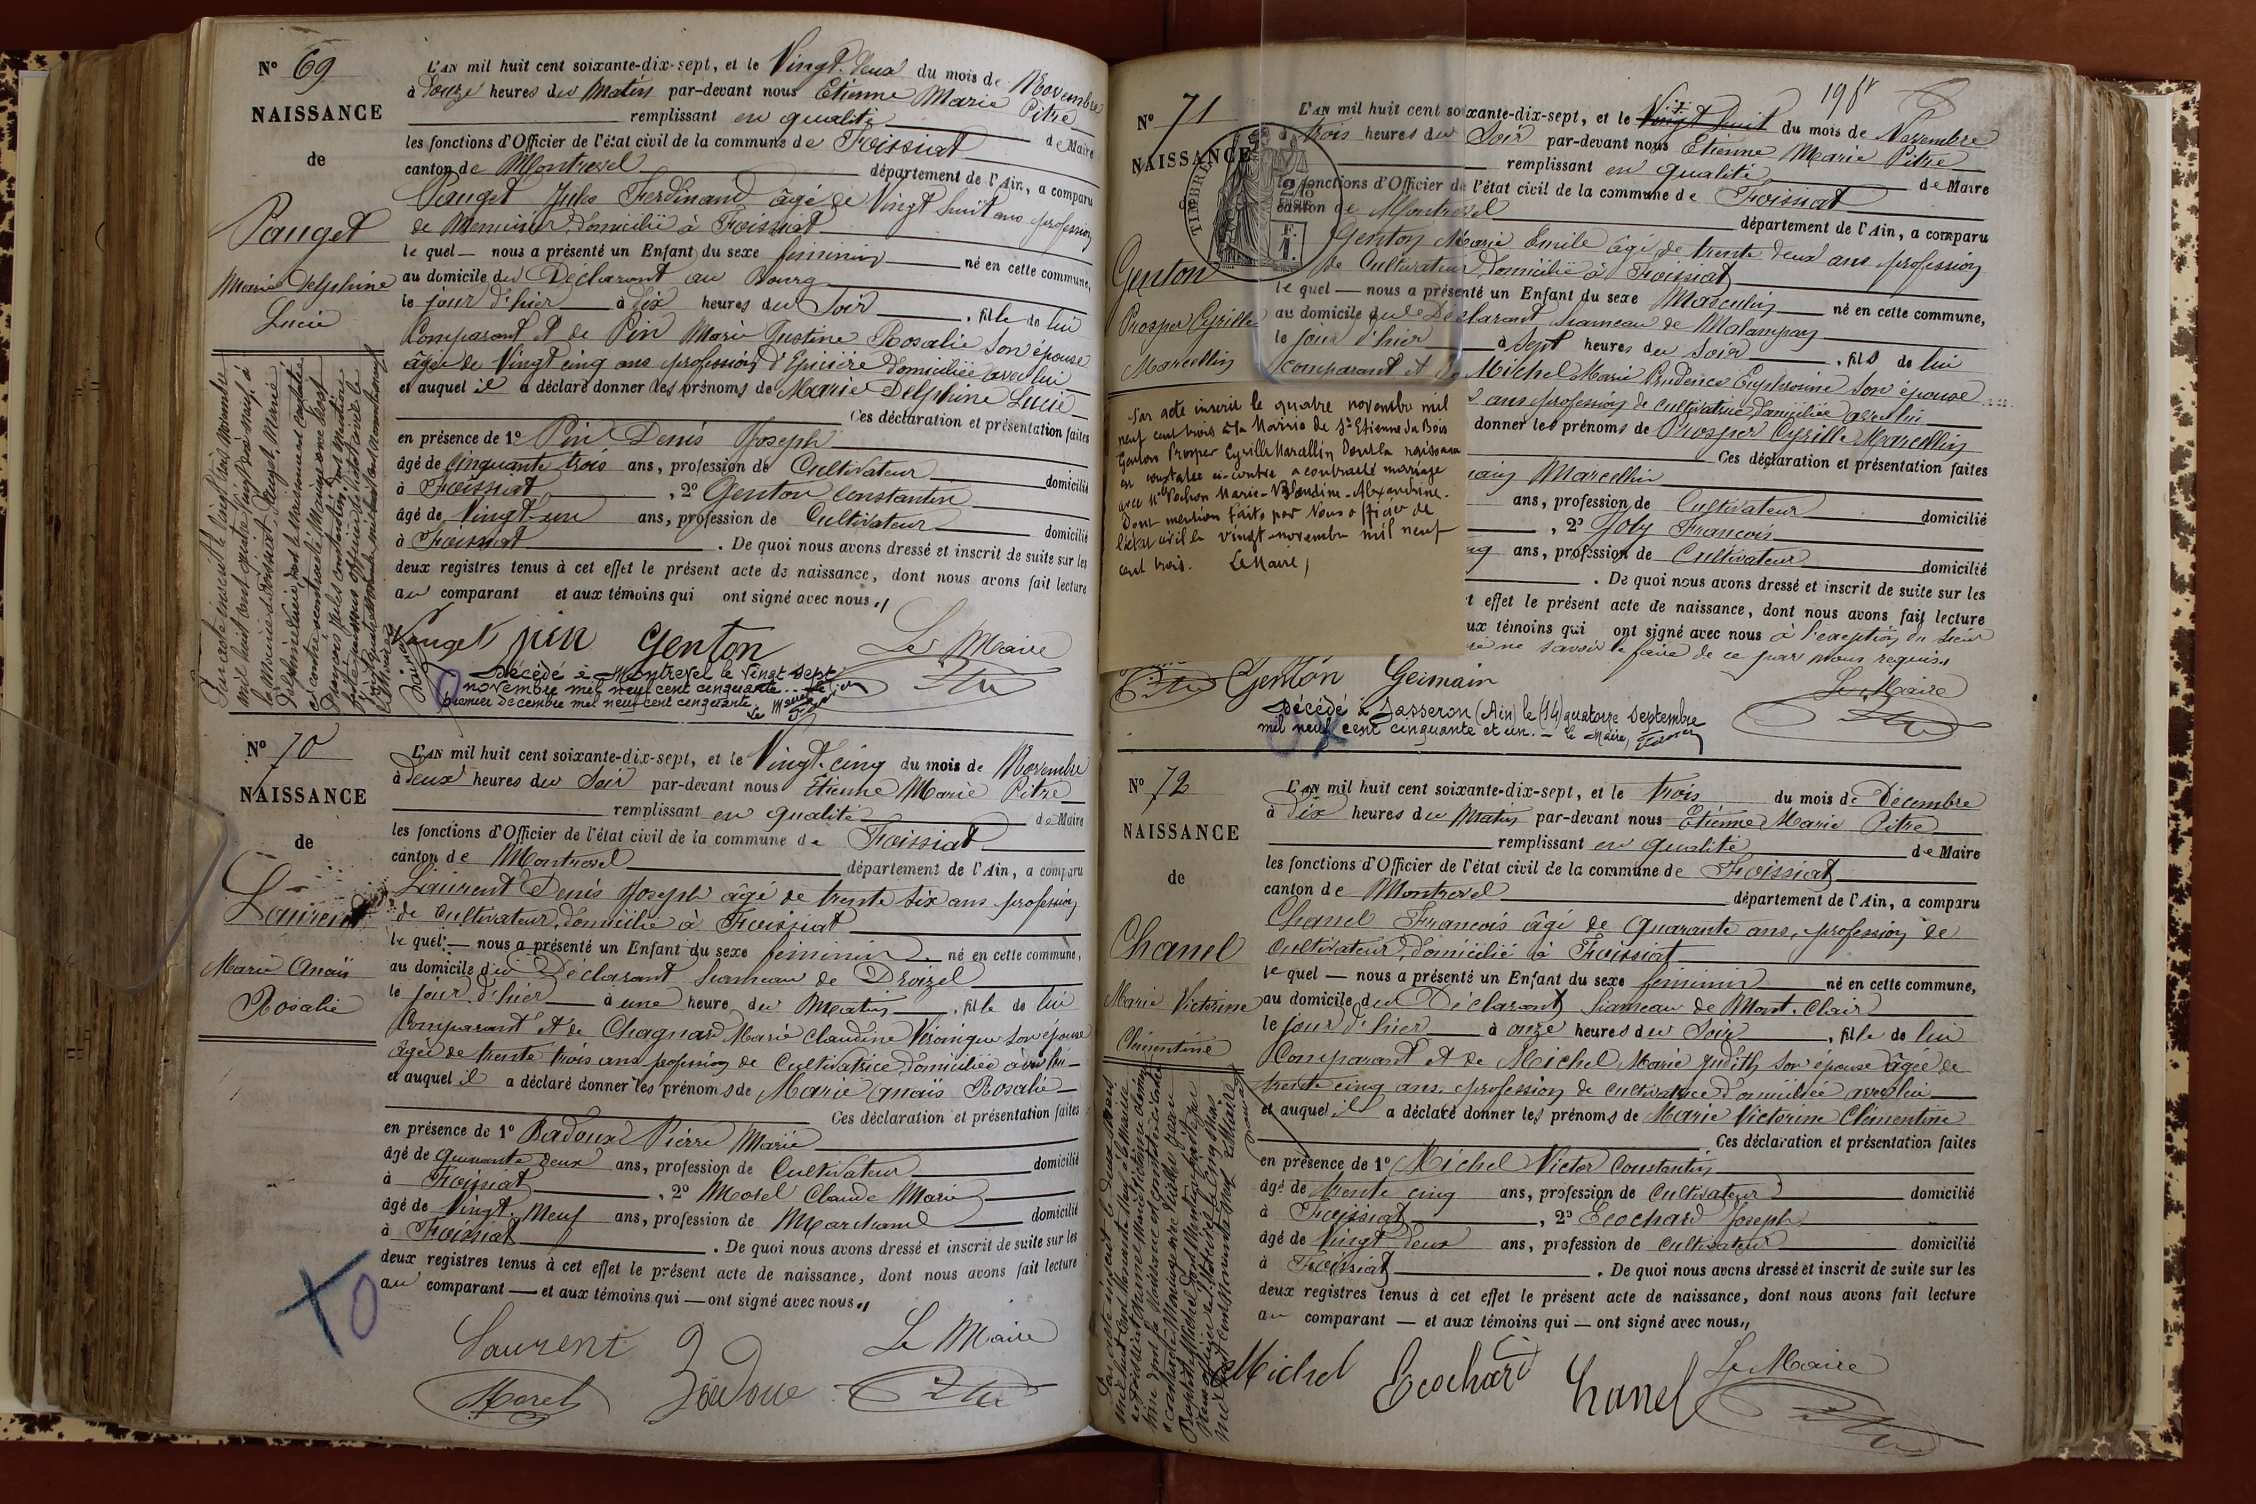 N° 69
NAISSANCE
de
Pauget
Marie Delphine
Lucie
L'AN mil huit cent soixante-dix-sept, et le Vingt-deux du mois de Novembre
à Douze heures du Matin par-devant nous Etienne Marie Pitre
remplissant en qualité de Maire
les fonctions d'Officier de l'état civil de la commune de Foissiat
canton de Montrevel département de l'Ain, a comparu
Pauget Jules Ferdinand âgé de Vingt huit ans profession
de Menuisier, domicilié à Foissiat
le quel — nous a présenté un Enfant du sexe feminin né en cette commune,
au domicile du Déclarant au Bourg
le jour d'hier à dix heures du Soir , fille de lui
Comparant et de Pin Marie Justine Rosalie son épouse
âgée de Vingt cinq ans profession d'Epicière domiciliée avec lui
et auquel il a déclaré donner les prénoms de Marie Delphine Lucie
Ces déclaration et présentation faites
en présence de 1° Pin Denis Joseph
âgé de Cinquante trois ans, profession de Cultivateur domicilié
à Foissiat , 2° Genton Constantin
âgé de Vingt-un ans, profession de Cultivateur domicilié
à Foissiat . De quoi nous avons dressé et inscrit de suite sur les
deux registres tenus à cet effet le présent acte de naissance, dont nous avons fait lecture
au comparant et aux témoins qui ont signé avec nous.
Pauget pin Genton Le Maire
Décédé à Montrevel le Vingt Sept
novembre mil neuf cent cinquante
premier Decembre mil neuf cent cinquante. Le Maire
N° 70
NAISSANCE
de
Laurent
Marie Anaïs
Rosalie
L'AN mil huit cent soixante-dix-sept, et le Vingt-cinq du mois de Novembre
à deux heures du Soir par-devant nous Etienne Marie Pitre
remplissant en qualité de Maire
les fonctions d'Officier de l'état civil de la commune de Foissiat
canton de Montrevel département de l'Ain, a comparu
Laurent Denis Joseph âgé de trente six ans profession
de Cultivateur, domicilié à Foissiat
le quel — nous a présenté un Enfant du sexe feminin né en cette commune,
au domicile du Déclarant hameau de Droizel
le jour d'hier à une heure du Matin , fille de lui
Comparant et de Chagnard Marie Claudine Véronique son épouse
âgée de trente trois ans profession de Cultivatrice domiciliée avec lui
et auquel il a déclaré donner les prénoms de Marie Anaïs Rosalie
Ces déclaration et présentation faites
en présence de 1° Badoux Pierre Marie
âgé de quarante deux ans, profession de Cultivateur domicilié
à Foissiat , 2° Morel Claude Marie
âgé de Vingt-Neuf ans, profession de Marchand domicilié
à Foissiat . De quoi nous avons dressé et inscrit de suite sur les
deux registres tenus à cet effet le présent acte de naissance, dont nous avons fait lecture
au comparant — et aux témoins qui — ont signé avec nous.
Laurent Le Maire
Morel
N° 71
NAISSANCE
Genton
Prosper Cyrille
Marcellin
TIMBRE
L'AN mil huit cent soixante-dix-sept, et le Vingt huit du mois de Novembre
à trois heures du Soir par-devant nous Etienne Marie Pitre
remplissant en qualité de Maire
les fonctions d'Officier de l'état civil de la commune de Foissiat
canton de Montrevel département de l'Ain, a comparu
Genton Marie Emile âgé de trente deux ans profession
de Cultivateur, domicilié à Foissiat
le quel — nous a présenté un Enfant du sexe Masculin né en cette commune,
au domicile du Déclarant hameau de Malampay
le jour d'hier à Sept heures du Soir , fils de lui
comparant et de Michel Marie Prudence Euphrosine son épouse
ans profession de cultivatrice domiciliée avec lui
donner les prénoms de Prosper Cyrille Marcellin
Ces déclaration et présentation faites
Marcellin
ans, profession de Cultivateur domicilié
, 2° Joly François
ans, profession de Cultivateur domicilié
. De quoi nous avons dressé et inscrit de suite sur les
effet le présent acte de naissance, dont nous avons fait lecture
témoins qui ont signé avec nous à l'exception du Sieur
ne savoir le faire de ce par nous requis
Par acte inscrit le quatre novembre mil
neuf cent trois à la Mairie de St Etienne du Bois
Genton Prosper Cyrille Marcellin dont la naissance
est constatée ci-contre a contracté mariage
avec Marie-Blandine-Alexandrine.
Dont mention faite par Nous officier de
l'état civil le vingt novembre mil neuf
cent trois. Le Maire,
Genton Germain Le Maire
Décédé à Jasseron (Ain) le (14) quatorze Septembre
mil neuf cent cinquante et un. — Le Maire,
N° 72
NAISSANCE
de
Chanel
Marie Victorine
Clémentine
L'AN mil huit cent soixante-dix-sept, et le trois du mois de Décembre
à dix heures du Matin par-devant nous Etienne Marie Pitre
remplissant en qualité de Maire
les fonctions d'Officier de l'état civil de la commune de Foissiat
canton de Montrevel département de l'Ain, a comparu
Chanel François âgé de quarante ans, profession de
Cultivateur, domicilié à Foissiat
le quel — nous a présenté un Enfant du sexe feminin né en cette commune,
au domicile du Déclarant hameau de Mont-Clair
le jour d'hier à onze heures du Soir , fille de lui
Comparant et de Michel Marie Judith son épouse âgée de
trente cinq ans, profession de cultivatrice domiciliée avec lui
et auquel il a déclaré donner les prénoms de Marie Victorine Clémentine
Ces déclaration et présentation faites
en présence de 1° Michel Victor Constantin
âgé de trente cinq ans, profession de Cultivateur domicilié
à Foissiat , 2° Ecochard Joseph
âgé de Vingt deux ans, profession de Cultivateur domicilié
à Foissiat . De quoi nous avons dressé et inscrit de suite sur les
deux registres tenus à cet effet le présent acte de naissance, dont nous avons fait lecture
au comparant — et aux témoins qui — ont signé avec nous.
Michel Ecochard Chanel Le Maire